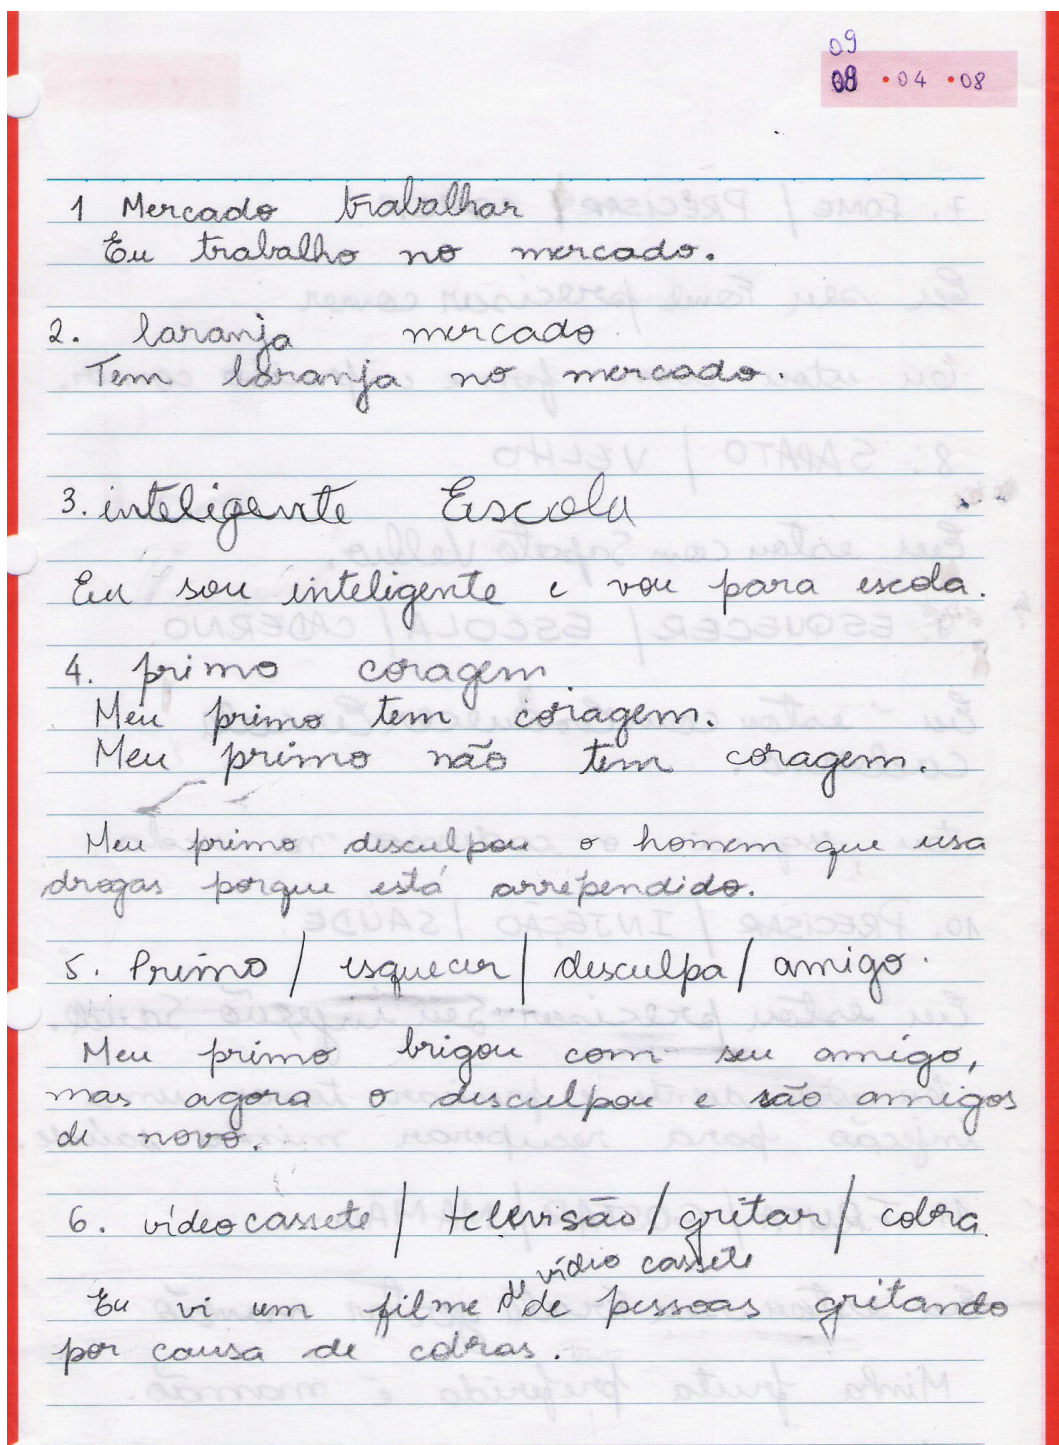 09
08 • 04 • 08
1 Mercado trabalhar
Eu trabalho no mercado.
2. laranja mercado
Tem laranja no mercado.
3. inteligente Escola
Eu sou inteligente e vou para escola.
4. primo coragem
Meu primo tem coragem.
Meu primo não tem coragem.
Meu primo desculpou o homem que usa
drogas porque está arrependido.
5. Primo / esquecer / desculpa / amigo.
Meu primo brigou com seu amigo,
mas agora o desculpou e são amigos
de novo.
6. vídeo cassete / televisão / gritar / cobra
de vídeo cassete
Eu vi um filme de pessoas gritando
por causa de cobras.